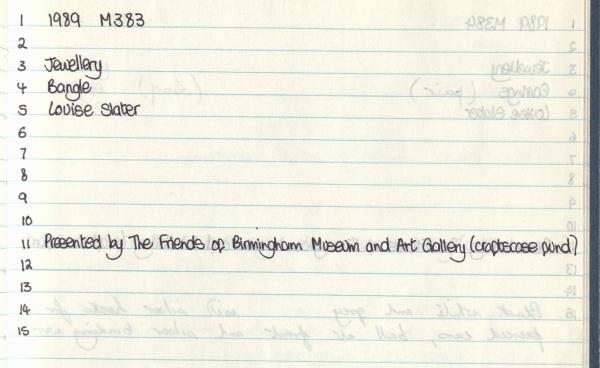 1 1989 M383
2
3 Jewellery
4 Bangle
5 Louise Slater
6
7
8
9
10
11 Presented by The Friends of Birmingham Museum and Art Gallery (craftscase fund)
12
13
14
15